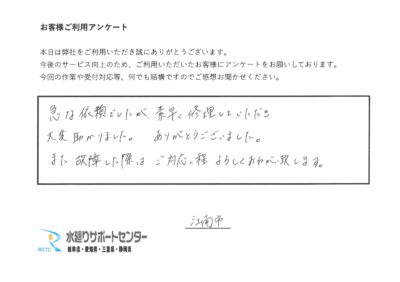 お客様ご利用アンケート
本日は弊社をご利用いただき誠にありがとうございます。
今後のサービス向上のため、ご利用いただいたお客様にアンケートをお願いしております。
今回の作業や受付対応等、何でも結構ですのでご感想お聞かせください。
急な依頼でしたが、素早く修理していただき
大変助かりました。 ありがとうございました。
また故障した際は ご対応の程 よろしくおねがい致します。
江南市
水廻りサポートセンター
岐阜県・愛知県・三重県・静岡県